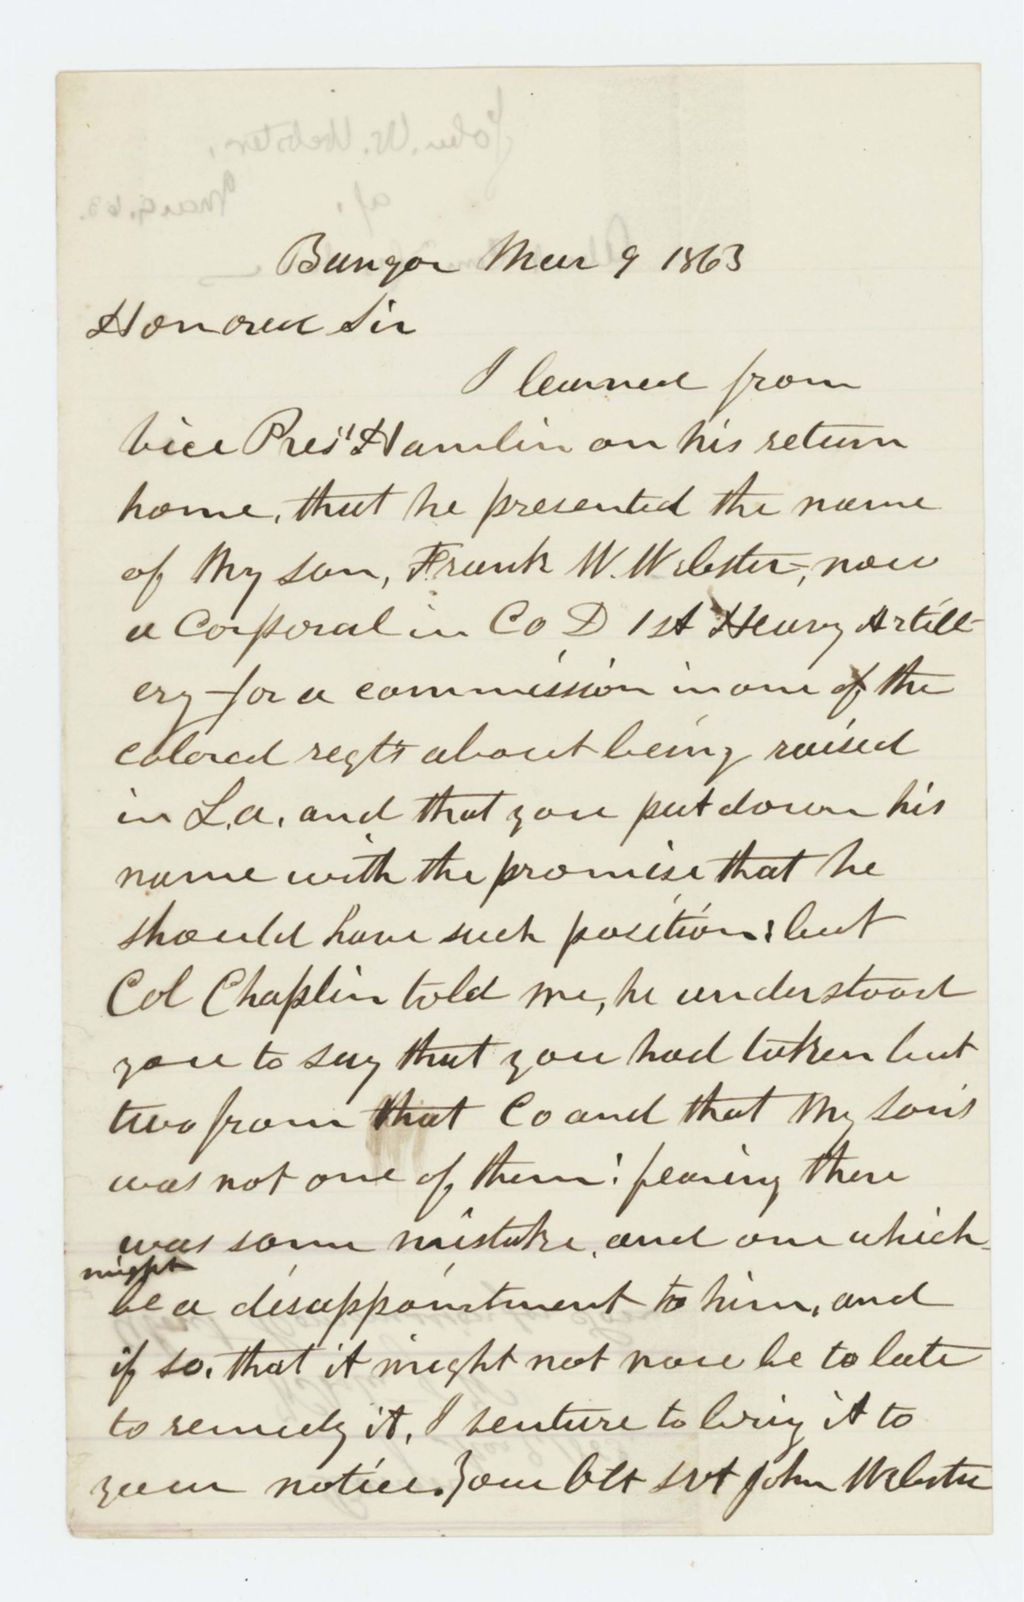 Bangor Mar 9 1863
Honored Sir
I learned from
Vice Pres't Hamlin on his return
home, that he presented the name
of My son, Frank W. Webster, now
a Corporal in Co D 1st Heavy Artill-
ery - for a commission in one of the
colored regt's about being raised
in La, and that you put down his
name with the promise that he
should have such position: but
Col Chaplin told me, he understood
you to say that you had taken but
two from that Co and that My son's
was not one of them: fearing there
was some mistake, and one which
might
be a disappointment to him, and
if so, that it might not now be to late
to remedy it, I venture to bring it to
your notice. Your Obt svt John Webster